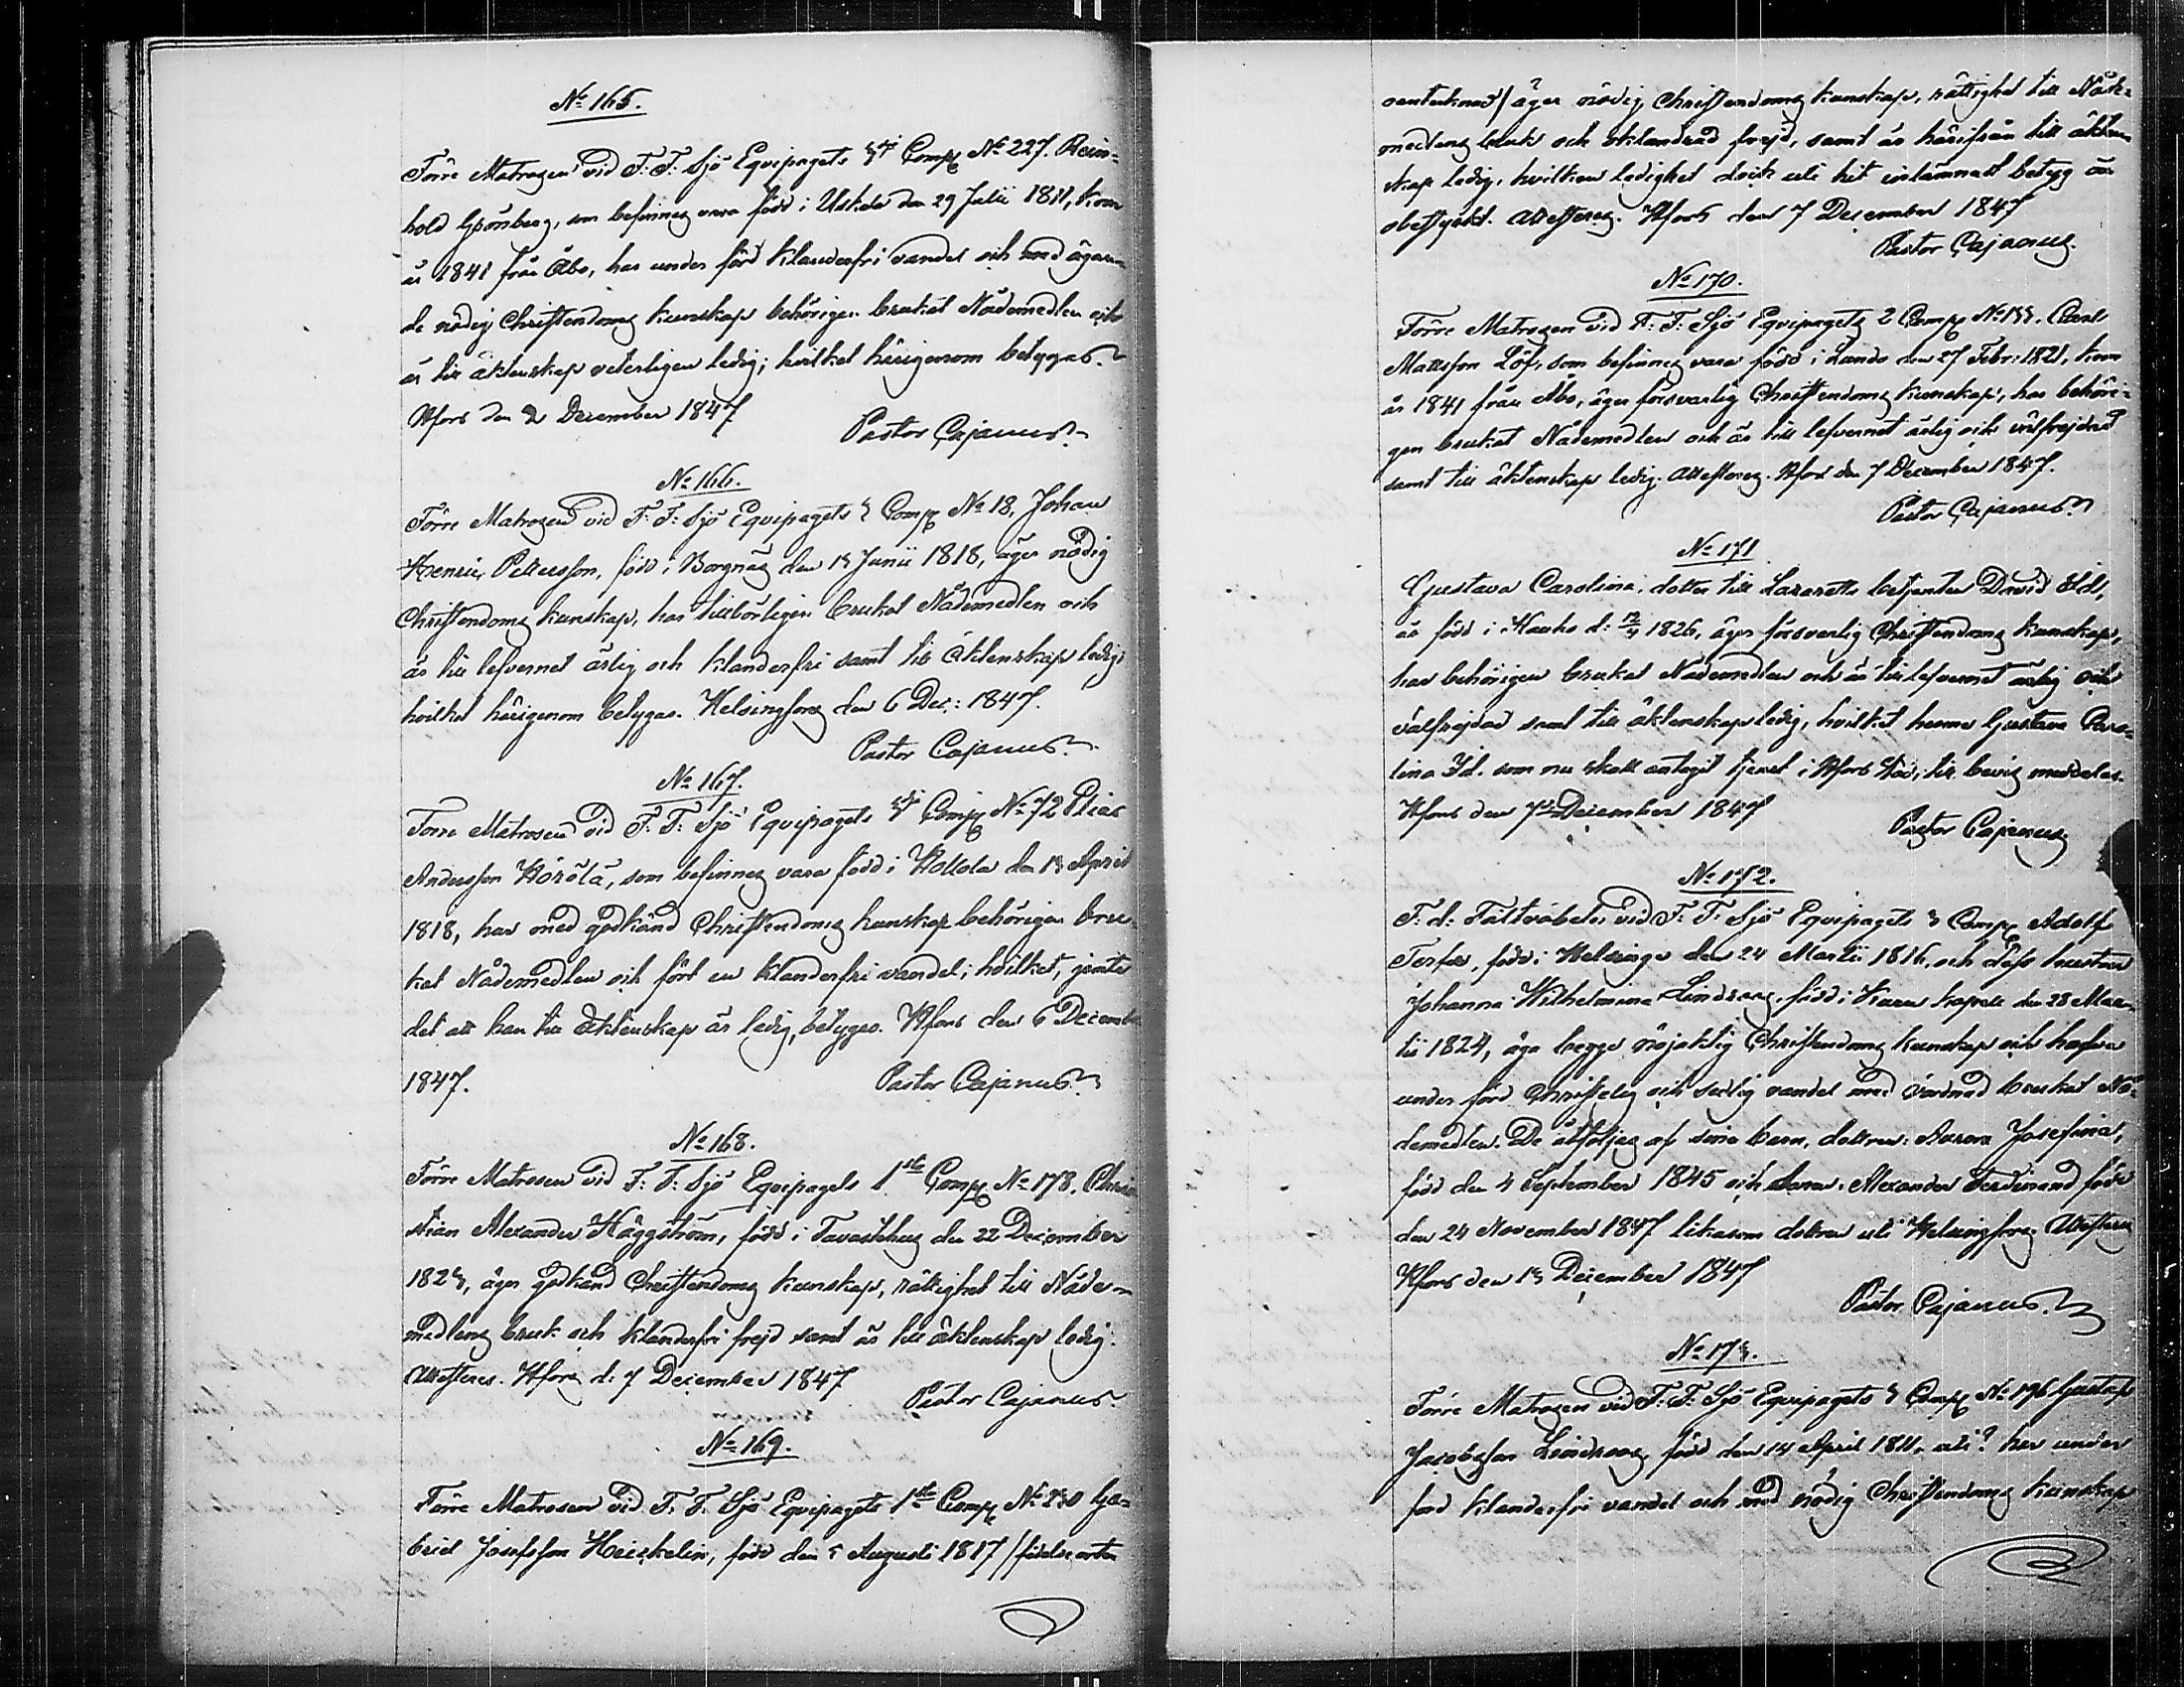 No 165.
Förre Matrosen vid F: F: Sjö Equipagets 3dje Comp No 227. Rein-
hold Grönberg, som befinnes vara född i Uskela den 29 Julii 1811, kom
år 1841 från Åbo, har under förd klanderfri vandel och med ägan-
de nödig Christendoms kunskap behörigen brukat Nådemedlen och
är till äktenskap veterligen ledig; hvilket härigenom betygas.
Hfors den 2 December 1847.
Pastor Cajanus.
No 166.
Förre Matrosen vid F: F: Sjö Equipagets 3 Comp No 18, Johan
Henric Pettersson, född i Borgnäs den 13 Junii 1818, äger nödig
Christendoms kunskap, har tillbörligen brukat Nådemedlen och
är till lefvernet ärlig och klanderfri samt till äktenskap ledig,
hvilket härigenom betygas. Helsingfors den 6 Dec: 1847.
Pastor Cajanus.
No 167.
Förre Matrosen vid F: F: Sjö Equipagets 3dje Comp No 72 Elias
Andersson Hörölä, som befinnes vara född i Hollola den 13 April
1818, har med godkänd Christendoms kunskap behörigen bru-
kat Nådemedlen och fört en klanderfri vandel; hvilket, jemte
det att han till äktenskap är ledig, betygas. Hfors den 6 December
1847.
Pastor Cajanus.
No 168.
Förre Matrosen vid F: F: Sjö Equipagets 1sta Comp No 178. Chri-
stian Alexander Häggström, född i Tavastehus den 22 December
1823, äger godkänd Christendoms kunskap, rättighet till Nåde-
medlens bruk och klanderfri frejd samt är till äktenskap ledig.
Attesteras. Hfors d: 7 December 1847
Pastor Cajanus.
No 169.
Förre Matrosen vid F. F. Sjö Equipagets 1sta Comp No 230 Ga-
briel Josefsson Heiskelin, född den 5 Augusti 1817 /födelseorten
oantecknad/ äger nödig Christendoms kunskap, rättighet till Nåde-
medlens bruk och oklandrad frejd, samt är härifrån till äkten-
skap ledig, hvilken ledighet dock uti hit inlämnadt betyg är
obestyrkt. Attesteras. Hfors den 7 December 1847
Pastor Cajanus.
No 170.
Förre Matrosen vid F: F: Sjö Equipagets 2 Comp No 133. Carl
Mattsson Löf, som befinnes vara född i Lando den 27 Febr: 1821, kom
år 1841 från Åbo, äger försvarlig Christendoms kunskap, har behöri-
gen brukat Nådemedlen och är till lefvernet ärlig och välfrejdad
samt till äktenskap ledig. Attesteras. Hfors den 7 December 1847.
Pastor Cajanus.
No 171
Gustava Carolina, dotter till Lazaretts betjenten David Id,
är född i Hauho d: 12/4 1826, äger försvarlig Christendoms kunskap,
har behörigen brukat Nådemedlen och är till lefvernet ärlig och
välfrejdad samt till äktenskap ledig, hvilket henne Gustava Caro-
lina Id. som nu skall antagit tjenst i Hfors stad, till bevis meddelas.
Hfors den 7 December 1847
Pastor Cajanus
No 172.
F: d: Fältväbeln vid F: F: Sjö Equipagets 3 Comp Adolf
Forss, född i Helsinge den 24 Martii 1816, och dess hustru
Johanna Wilhelmina Lindroos, född i Karu kapell den 28 Mar-
tii 1824, äga begge nöjaktig Christendoms kunskap och hafva
under förd christelig och sedlig vandel med vördnad brukat Nå-
demedlen. De åtföljas af sina barn, dottren: Aurora Josefina,
född den 4 September 1845 och sonen Alexander Ferdinand född
den 24 November 1847 likasom dottren uti Helsingfors. Attesteras
Hfors den 13 December 1847
Pastor Cajanus.
No 173.
Förre Matrosen vid F: F: Sjö Equipagets 3 Comp No 196 Gustaf
Jacobsson Lindroos född den 14 April 1811, uti? har under
förd klanderfri vandel och med nödig Christendoms kunskap